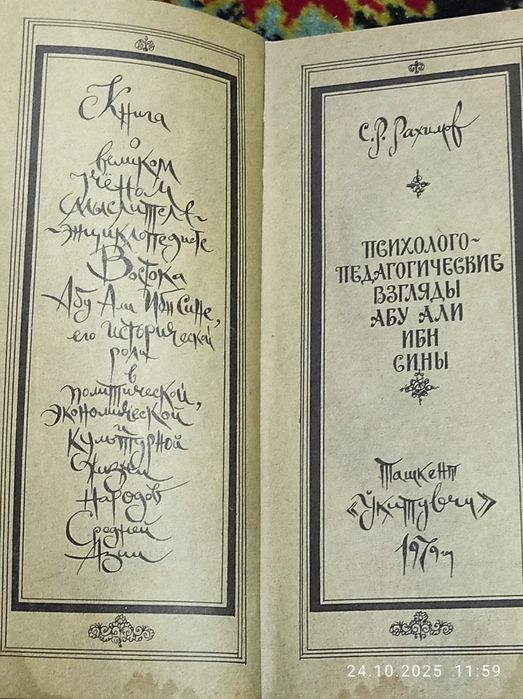 Книга
о
великом
учёном
мыслителе-
-энциклопедисте
Востока
Абу Али Ибн Сине,
его исторической
роли
в
политической,
экономической
и
культурной
жизни
народов
Средней
Азии
С.Р. Рахимов
ПСИХОЛОГО-
ПЕДАГОГИЧЕСКИЕ
ВЗГЛЯДЫ
АБУ АЛИ
ИБН
СИНЫ
Ташкент
«Ўқитувчи»
1979
24.10.2025 11:59